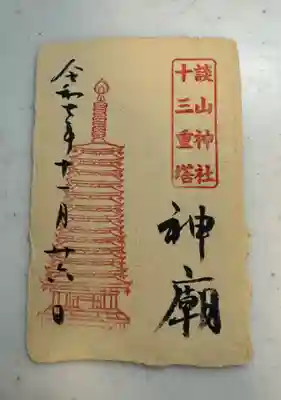 談山神社
十三重塔
神廟
令和七年十一月廿六日